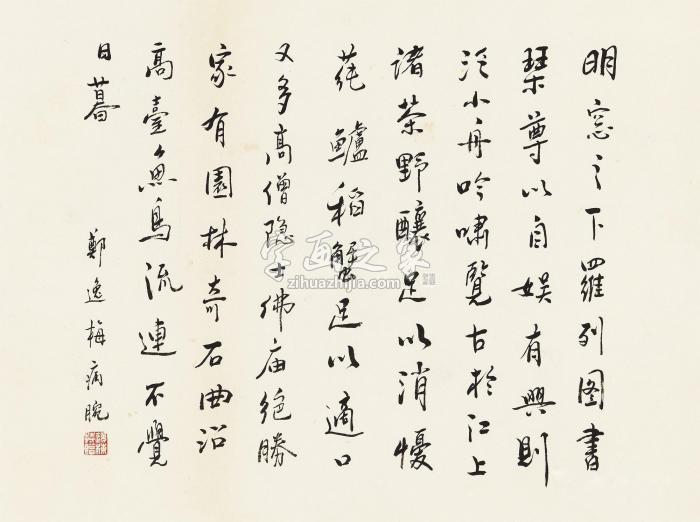 明窓之下羅列图書
琹尊以自娱有興則
泛小舟吟嘯覽古於江上
渚茶野釀足以消憂
蒓鱸稻蟹足以適口
又多高僧隐士佛庙絶勝
家有園林奇石曲沼
高臺魚鳥流連不覺
日暮
鄭逸梅病腕
字画之家
zihuazhijia.com